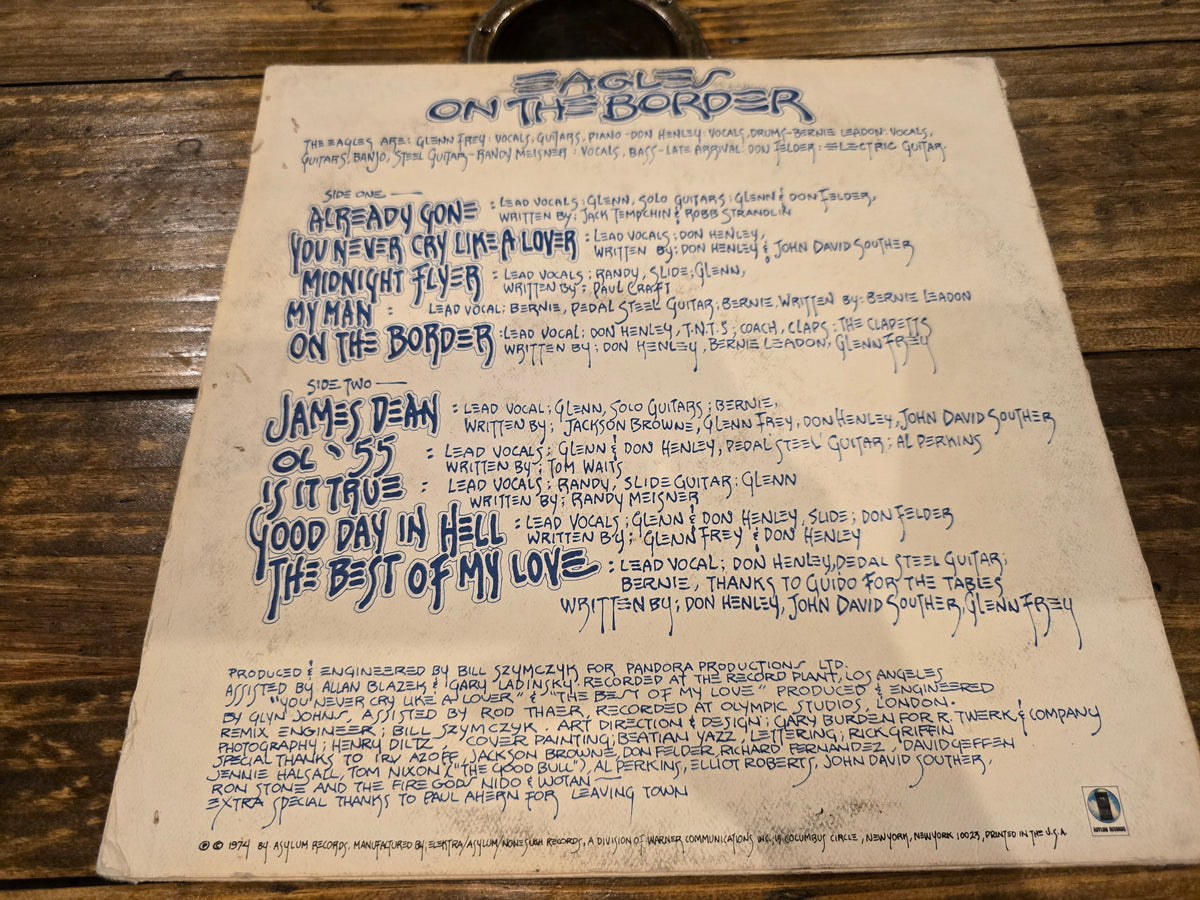 EAGLES
ON THE BORDER
THE EAGLES ARE: GLENN FREY: VOCALS, GUITARS, PIANO - DON HENLEY: VOCALS, DRUMS - BERNIE LEADON: VOCALS,
GUITARS, BANJO, STEEL GUITAR - RANDY MEISNER: VOCALS, BASS - LATE ARRIVAL: DON FELDER: ELECTRIC GUITAR.
SIDE ONE —
ALREADY GONE : LEAD VOCALS; GLENN, SOLO GUITARS; GLENN & DON FELDER,
WRITTEN BY; JACK TEMPCHIN & ROBB STRANDLIN
YOU NEVER CRY LIKE A LOVER : LEAD VOCALS; DON HENLEY,
WRITTEN BY; DON HENLEY & JOHN DAVID SOUTHER
MIDNIGHT FLYER : LEAD VOCALS; RANDY, SLIDE; GLENN,
WRITTEN BY; PAUL CRAFT
MY MAN : LEAD VOCAL; BERNIE, PEDAL STEEL GUITAR; BERNIE, WRITTEN BY: BERNIE LEADON
ON THE BORDER : LEAD VOCAL; DON HENLEY, T.N.T.S; COACH, CLAPS: THE CLAPETTS
WRITTEN BY; DON HENLEY, BERNIE LEADON, GLENN FREY
SIDE TWO —
JAMES DEAN : LEAD VOCAL; GLENN, SOLO GUITARS; BERNIE,
WRITTEN BY; JACKSON BROWNE, GLENN FREY, DON HENLEY, JOHN DAVID SOUTHER
OL '55 : LEAD VOCALS; GLENN & DON HENLEY, PEDAL STEEL GUITAR; AL PERKINS
WRITTEN BY; TOM WAITS
IS IT TRUE : LEAD VOCALS; RANDY, SLIDE GUITAR: GLENN
WRITTEN BY; RANDY MEISNER
GOOD DAY IN HELL : LEAD VOCALS; GLENN & DON HENLEY, SLIDE; DON FELDER
WRITTEN BY; GLENN FREY & DON HENLEY
THE BEST OF MY LOVE : LEAD VOCAL; DON HENLEY, PEDAL STEEL GUITAR;
BERNIE, THANKS TO GUIDO FOR THE TABLES
WRITTEN BY; DON HENLEY, JOHN DAVID SOUTHER, GLENN FREY
PRODUCED & ENGINEERED BY BILL SZYMCZYK FOR PANDORA PRODUCTIONS LTD.
ASSISTED BY ALLAN BLAZEK & GARY LADINSKY, RECORDED AT THE RECORD PLANT, LOS ANGELES
"YOU NEVER CRY LIKE A LOVER" & "THE BEST OF MY LOVE" PRODUCED & ENGINEERED
BY GLYN JOHNS, ASSISTED BY ROD THAER, RECORDED AT OLYMPIC STUDIOS, LONDON.
REMIX ENGINEER; BILL SZYMCZYK. ART DIRECTION & DESIGN; GARY BURDEN FOR R. TWERK & COMPANY
PHOTOGRAPHY; HENRY DILTZ. COVER PAINTING; BEATIAN YAZZ, LETTERING; RICK GRIFFIN
SPECIAL THANKS TO IRV AZOFF, JACKSON BROWNE, DON FELDER, RICHARD FERNANDEZ, DAVID GEFFEN
JENNIE HALSALL, TOM NIXON ("THE GOOD BULL"), AL PERKINS, ELLIOT ROBERTS, JOHN DAVID SOUTHER,
RON STONE AND THE FIRE GODS NIDO & WOTAN —
EXTRA SPECIAL THANKS TO PAUL AHERN FOR LEAVING TOWN
℗ © 1974 BY ASYLUM RECORDS. MANUFACTURED BY ELEKTRA/ASYLUM/NONESUCH RECORDS, A DIVISION OF WARNER COMMUNICATIONS INC, 15 COLUMBUS CIRCLE, NEW YORK, NEW YORK 10023, PRINTED IN THE U.S.A.
ASYLUM RECORDS